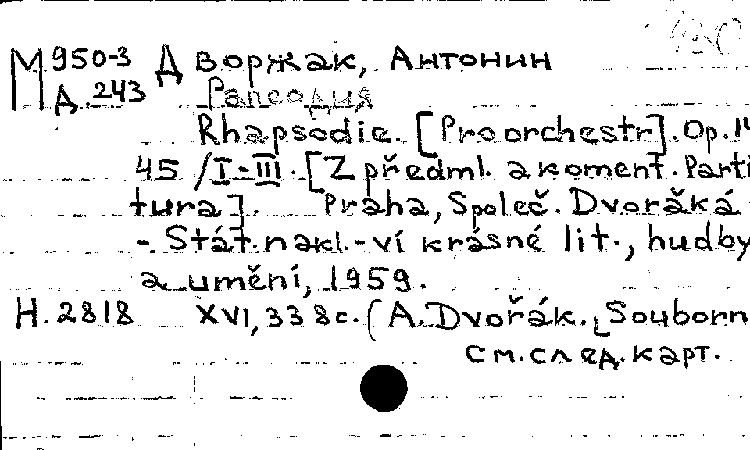 М 950-3 Дворжак, Антонин
Д. 243 Рапсодия
Rhapsodie. [Pro orchestr]. Op. 14
45 / I-III. [Z předml. a koment. Parti
tura]. Praha, Společ. Dvořáká
- Stát. nakl.-ví krásné lit., hudby
a umění, 1959.
Н. 2818 XVI, 338с. (A. Dvořák. Souborn
См. след. карт.